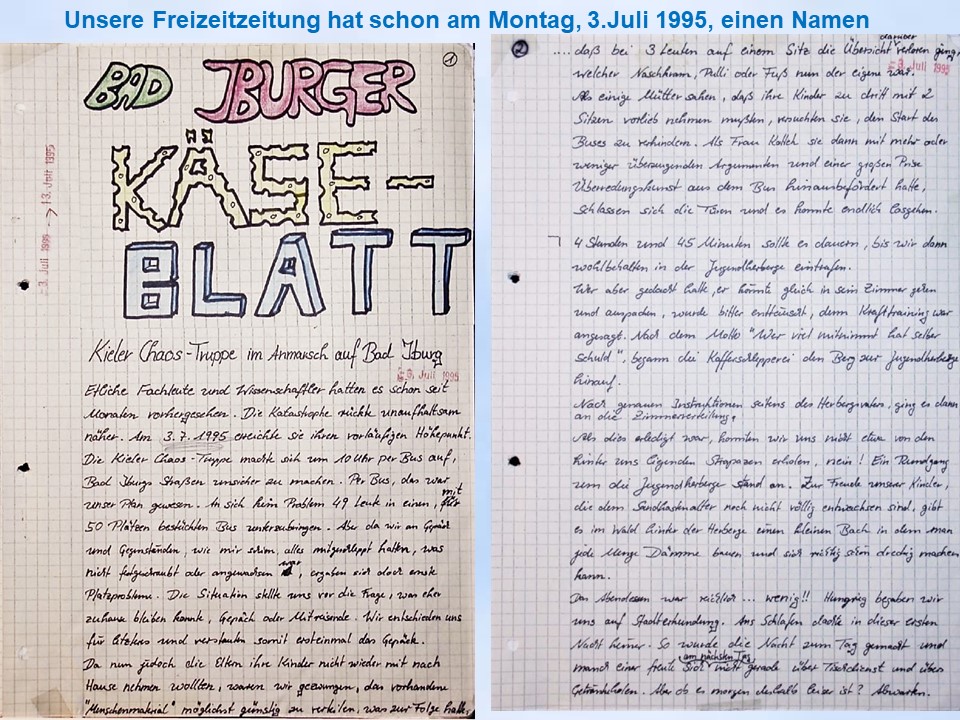 Unsere Freizeitzeitung hat schon am Montag, 3.Juli 1995, einen Namen
1
BAD JBURGER
KÄSE-
BLATT
-3. Juli 1995 -> 13. Juli 1995
Kieler Chaos-Truppe im Anmarsch auf Bad Jburg
-3. Juli 1995
Etliche Fachleute und Wissenschaftler hatten es schon seit
Monaten vorhergesehen. Die Katastrophe rückt unaufhaltsam
näher. Am 3.7.1995 erreichte sie ihren vorläufigen Höhepunkt.
Die Kieler Chaos-Truppe machte sich um 10 Uhr per Bus auf,
Bad Jburgs Straßen unsicher zu machen. Per Bus, das war
unser Plan gewesen. An sich kein Problem 49 Leute in einen, mit
50 Plätzen bestückten Bus unterzubringen. Aber da wir an Gepäck
und Gegenständen, wie mir schien, alles mitgeschleppt hatten, was
nicht festgeschraubt oder angewachsen war, ergaben sich doch ernste
Platzprobleme. Die Situation stellte uns vor die Frage, was eher
zuhause bleiben konnte, Gepäck oder Mitreisende. Wir entschieden uns
für letzteres und verstauten somit ersteinmal das Gepäck.
Da nun jedoch die Eltern ihre Kinder nicht wieder mit nach
Hause nehmen wollten, waren wir gezwungen, das vorhandene
"Menschenmaterial" möglichst günstig zu verteilen, was zur Folge hatte,
2
.... daß bei 3 Leuten auf einem Sitz die Übersicht darüber verloren ging,
welcher Naschkram, Pulli oder Fuß nun der eigene war.
-3. Juli 1995
Als einige Mütter sahen, daß ihre Kinder zu dritt mit 2
Sitzen vorlieb nehmen mußten, versuchten sie, den Start des
Buses zu verhindern. Als Frau sie dann mit mehr oder
weniger überzeugenden Argumenten und einer großen Prise
Überredungskunst aus dem Bus hinausbefördert hatte,
schlossen sich die Türen und es konnte endlich losgehen.
4 Stunden und 45 Minuten sollte es dauern, bis wir dann
wohlbehalten in der Jugendherberge eintrafen.
Wer aber gedacht hatte, er könnte gleich in sein Zimmer gehen
und auspacken, wurde bitter enttäuscht, denn Krafttraining war
angesagt. Nach dem Motto "Wer viel mitnimmt hat selber
schuld", begann die Kofferschlepperei den Berg zur Jugendherberge
hinauf.
Nach genauen Instruktionen seitens des Herbergsvaters, ging es dann
an die Zimmerverteilung.
Als dies erledigt war, konnten wir uns nicht etwa von den
hinter uns liegenden Strapazen erholen, nein! Ein Rundgang
um die Jugendherberge stand an. Zur Freude unserer Kinder,
die dem Sandkastenalter noch nicht völlig entwachsen sind, gibt
es im Wald hinter der Herberge einen kleinen Bach in dem man
jede Menge Dämme bauen und sich richtig schön dreckig machen
kann.
Das Abendessen war reichlich ... wenig!! Hungrig begaben wir
uns auf Stadterkundung. Ans Schlafen dachte in dieser ersten
Nacht keiner. So wurde die Nacht zum Tag gemacht und
manch einer freute sich am nächsten Tag nicht gerade über Tischdienst und übers
Getränkeholen. Aber ob es morgen deshalb leiser ist? Abwarten.